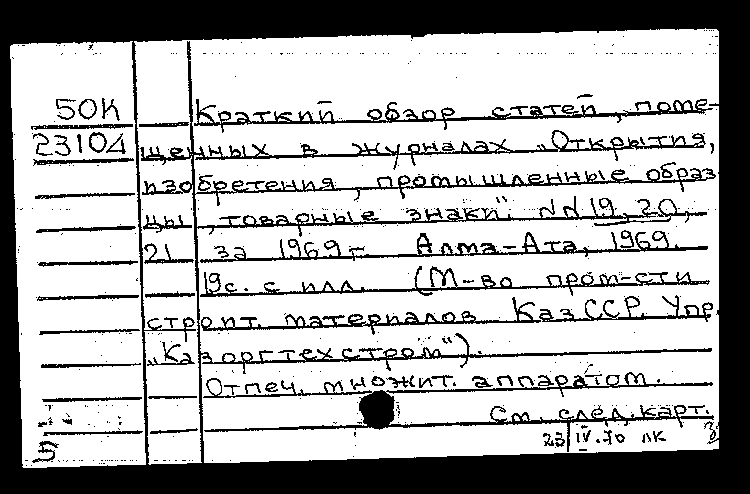 50К Краткий обзор статей, поме-
23104 щенных в журналах „Открытия,
изобретения, промышленные образ
цы, товарные знаки". NN 19, 20,
21 за 1969 г. Алма-Ата, 1969.
19с. с илл. (М-во пром-сти
строит. материалов КазССР. Упр.
„Казоргтехстром").
Отпеч. множит. аппаратом.
См. след. карт.
5 23 IV.70 ЛК